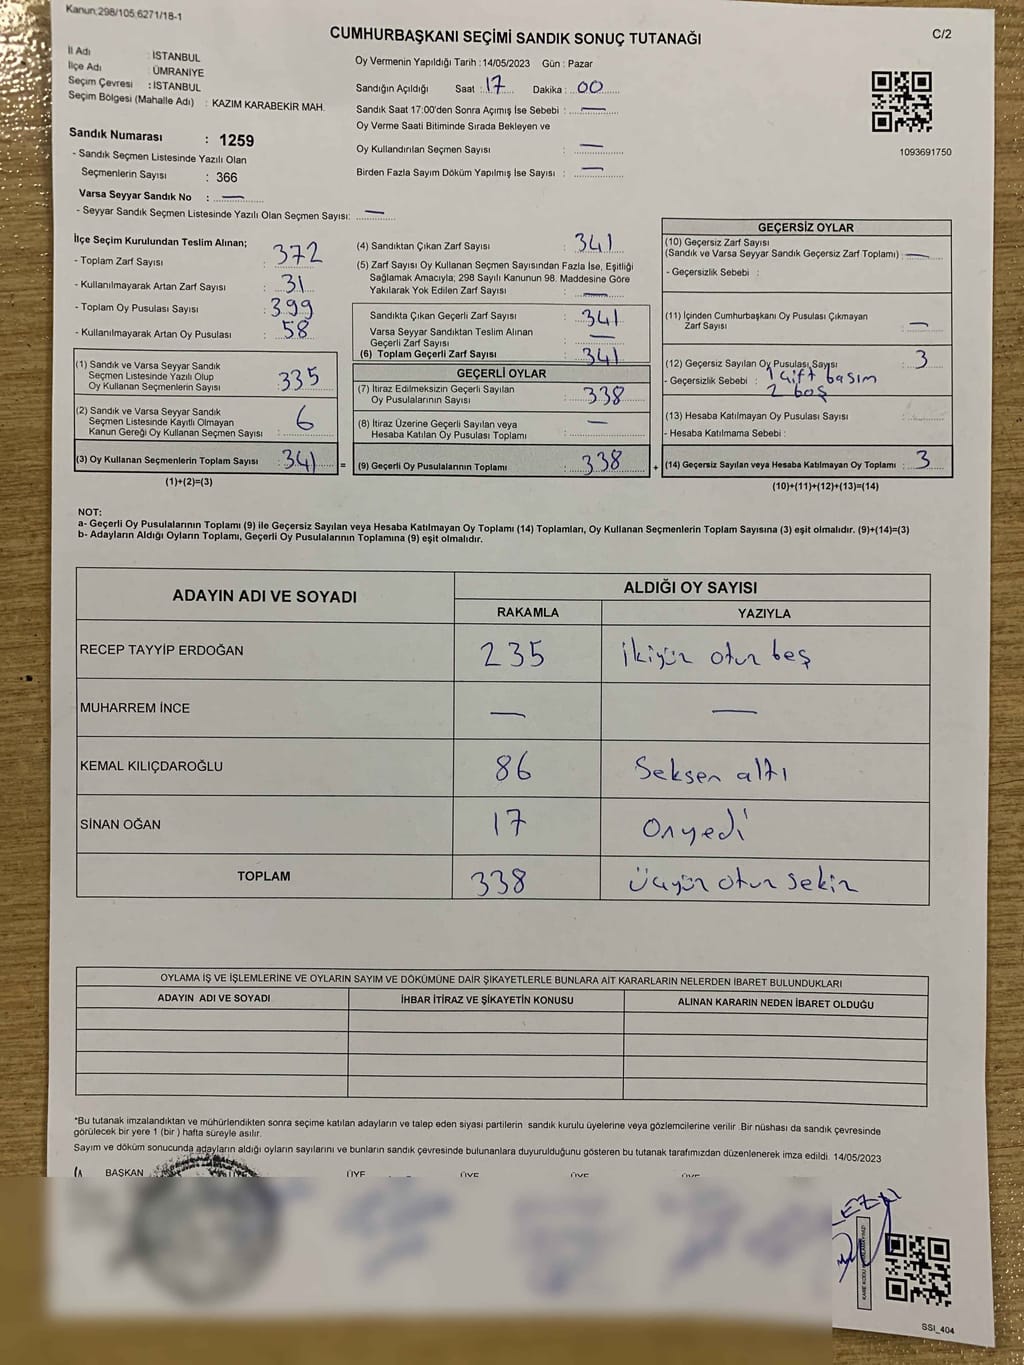 Kanun:298/105;6271/18-1
CUMHURBAŞKANI SEÇİMİ SANDIK SONUÇ TUTANAĞI
C/2
İl Adı : İSTANBUL
İlçe Adı : ÜMRANİYE
Seçim Çevresi : İSTANBUL
Seçim Bölgesi (Mahalle Adı) : KAZIM KARABEKİR MAH.
Sandık Numarası : 1259
- Sandık Seçmen Listesinde Yazılı Olan
Seçmenlerin Sayısı : 366
Varsa Seyyar Sandık No : —
- Seyyar Sandık Seçmen Listesinde Yazılı Olan Seçmen Sayısı: —
Oy Vermenin Yapıldığı Tarih :14/05/2023 Gün : Pazar
Sandığın Açıldığı Saat : 17 Dakika : 00
Sandık Saat 17:00'den Sonra Açımış İse Sebebi : —
Oy Verme Saati Bitiminde Sırada Bekleyen ve
Oy Kullandırılan Seçmen Sayısı : —
Birden Fazla Sayım Döküm Yapılmış İse Sayısı : —
1093691750
İlçe Seçim Kurulundan Teslim Alınan;
- Toplam Zarf Sayısı : 372
- Kullanılmayarak Artan Zarf Sayısı : 31
- Toplam Oy Pusulası Sayısı : 399
- Kullanılmayarak Artan Oy Pusulası : 58
(1) Sandık ve Varsa Seyyar Sandık
Seçmen Listesinde Yazılı Olup
Oy Kullanan Seçmenlerin Sayısı : 335
(2) Sandık ve Varsa Seyyar Sandık
Seçmen Listesinde Kayıtlı Olmayan
Kanun Gereği Oy Kullanan Seçmen Sayısı : 6
(3) Oy Kullanan Seçmenlerin Toplam Sayısı : 341
(1)+(2)=(3)
(4) Sandıktan Çıkan Zarf Sayısı : 341
(5) Zarf Sayısı Oy Kullanan Seçmen Sayısından Fazla İse, Eşitliği
Sağlamak Amacıyla, 298 Sayılı Kanunun 98. Maddesine Göre
Yakılarak Yok Edilen Zarf Sayısı : —
Sandıkta Çıkan Geçerli Zarf Sayısı : 341
Varsa Seyyar Sandıktan Teslim Alınan
Geçerli Zarf Sayısı : —
(6) Toplam Geçerli Zarf Sayısı : 341
GEÇERLİ OYLAR
(7) İtiraz Edilmeksizin Geçerli Sayılan
Oy Pusulalarının Sayısı : 338
(8) İtiraz Üzerine Geçerli Sayılan veya
Hesaba Katılan Oy Pusulası Toplamı : —
= (9) Geçerli Oy Pusulalarının Toplamı : 338 +
GEÇERSİZ OYLAR
(10) Geçersiz Zarf Sayısı
(Sandık ve Varsa Seyyar Sandık Geçersiz Zarf Toplamı) : —
- Geçersizlik Sebebi :
(11) İçinden Cumhurbaşkanı Oy Pusulası Çıkmayan
Zarf Sayısı : —
(12) Geçersiz Sayılan Oy Pusulası Sayısı : 3
- Geçersizlik Sebebi : 1 çift basım
2 boş
(13) Hesaba Katılmayan Oy Pusulası Sayısı :
- Hesaba Katılmama Sebebi :
(14) Geçersiz Sayılan veya Hesaba Katılmayan Oy Toplamı : 3
(10)+(11)+(12)+(13)=(14)
NOT:
a- Geçerli Oy Pusulalarının Toplamı (9) ile Geçersiz Sayılan veya Hesaba Katılmayan Oy Toplamı (14) Toplamları, Oy Kullanan Seçmenlerin Toplam Sayısına (3) eşit olmalıdır. (9)+(14)=(3)
b- Adayların Aldığı Oyların Toplamı, Geçerli Oy Pusulalarının Toplamına (9) eşit olmalıdır.
ADAYIN ADI VE SOYADI
ALDIĞI OY SAYISI
RAKAMLA YAZIYLA
RECEP TAYYİP ERDOĞAN 235 ikiyüz otuz beş
MUHARREM İNCE — —
KEMAL KILIÇDAROĞLU 86 Seksen altı
SİNAN OĞAN 17 Onyedi
TOPLAM 338 Üçyüz otuz sekiz
OYLAMA İŞ VE İŞLEMLERİNE VE OYLARIN SAYIM VE DÖKÜMÜNE DAİR ŞİKAYETLERLE BUNLARA AİT KARARLARIN NELERDEN İBARET BULUNDUKLARI
ADAYIN ADI VE SOYADI İHBAR İTİRAZ VE ŞİKAYETİN KONUSU ALINAN KARARIN NEDEN İBARET OLDUĞU
*Bu tutanak imzalandıktan ve mühürlendikten sonra seçime katılan adayların ve talep eden siyasi partilerin sandık kurulu üyelerine veya gözlemcilerine verilir .Bir nüshası da sandık çevresinde
görülecek bir yere 1 (bir ) hafta süreyle asılır.
Sayım ve döküm sonucunda adayların aldığı oyların sayılarını ve bunların sandık çevresinde bulunanlara duyurulduğunu gösteren bu tutanak tarafımızdan düzenlenerek imza edildi. 14/05/2023
BAŞKAN ÜYE ÜYE ÜYE ÜYE
SSI_404